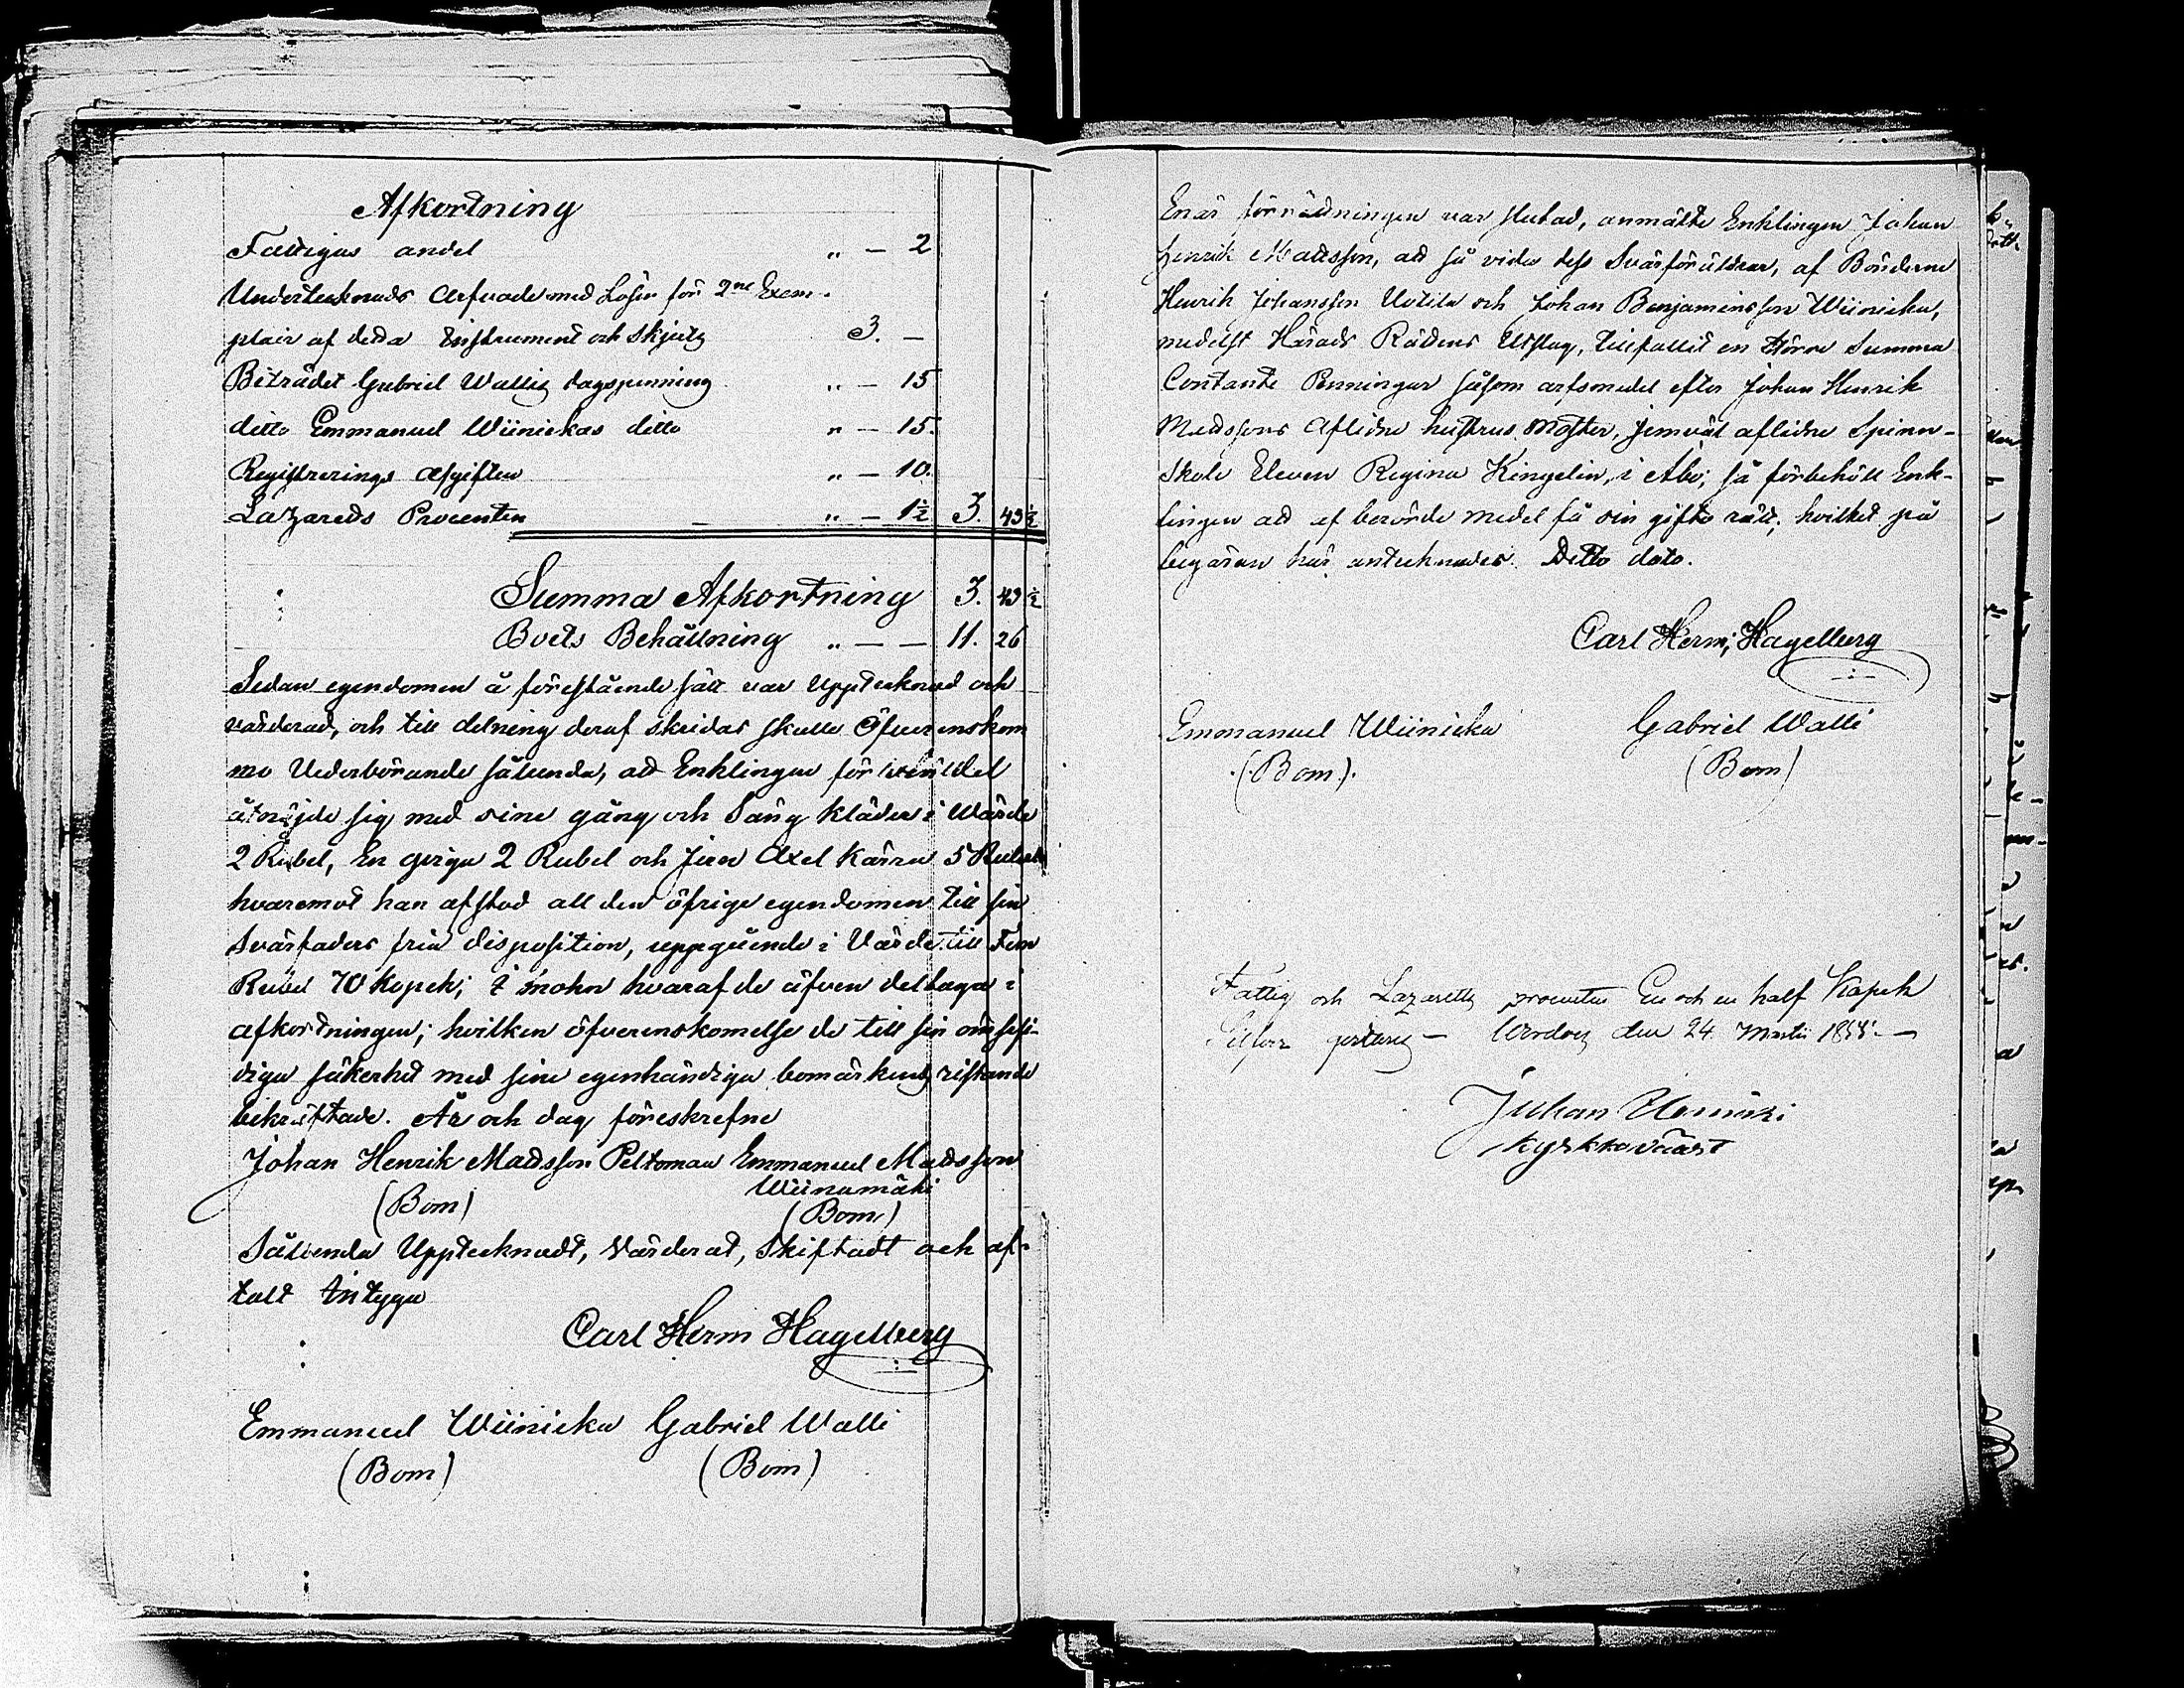 Afkortning
Fattigas andel " — 2
Undertecknads arfvode med Lösen för 2ne Exem-
plair af detta Instrument och skjuts 3. —
Biträdet Gabriel Wallis dagspenning " — 15
ditto Emmanuel Wiinickas ditto " — 15.
Registrerings afgiften " — 10.
Lazarets Procenten " — 1½ 3. 43½
Summa Afkortning 3. 43½
Boets Behållning " — — 11. 26
Sedan egendomen å förestående sätt var Upptecknad och
värderad, och till delning deraf skridas skulle Öfverenskom
mo Vederbörande sålunda, att Enklingen för
åtnöjde sig med sine gång och Säng kläder i Wärde
2 Rubel, En giriga 2 Rubel och Jern Axel Kärra 5 Rubel
hvaremot han afstod all den öfriga egendomen till sin
Svärfaders fria disposition, uppgående i Värde till Fem
Rubel 70 Kopek; i mohn hvaraf de äfven deltaga i
afkortningen; hvilken öfverenskomelse de till sin ömsesi-
diga säkerhet med sine egenhändiga bomärkens ristande
bekräftade. År och dag föreskrefne
Johan Henrik Madsson Peltomaa Emmanuel Madsson
Wiinamäki
(Bom) (Bom)
Sålunda Upptecknadt, Värderat, Skiftadt och af-
talt Intyga
Carl Herm Hagelberg
Emmanuel Wiinicka Gabriel Walli
(Bom) (Bom)
Enär förrättningen var slutad, anmälte Enklingen Johan
Henrik Madsson, att så vida dess Svärföräldrar, af Bönderne
Henrik Johansson Uotila och Johan Benjaminsson Wiinicka,
medelst Härads Rättens Utslag, tillfallit en större Summa
Contante Penningar såsom arfsmedel efter Johan Henrik
Madssons Aflidne hustrus Moster, jemväl aflidne Spinn-
Skole Eleven Regina Kingelin, i Åbo; så förbehöll Enk-
lingen att af berörde medel få sin gifto rätt; hvilket på
begäran här antecknades. Ditto dato.
Carl Herm; Hagelberg
Emmanuel Wiinicka Gabriel Walli
(Bom). (Bom)
Fattig och Lazaretts procenten En och en half Kopek
Silfver den 24 Martii
Juhan
Kyrkkoväärt